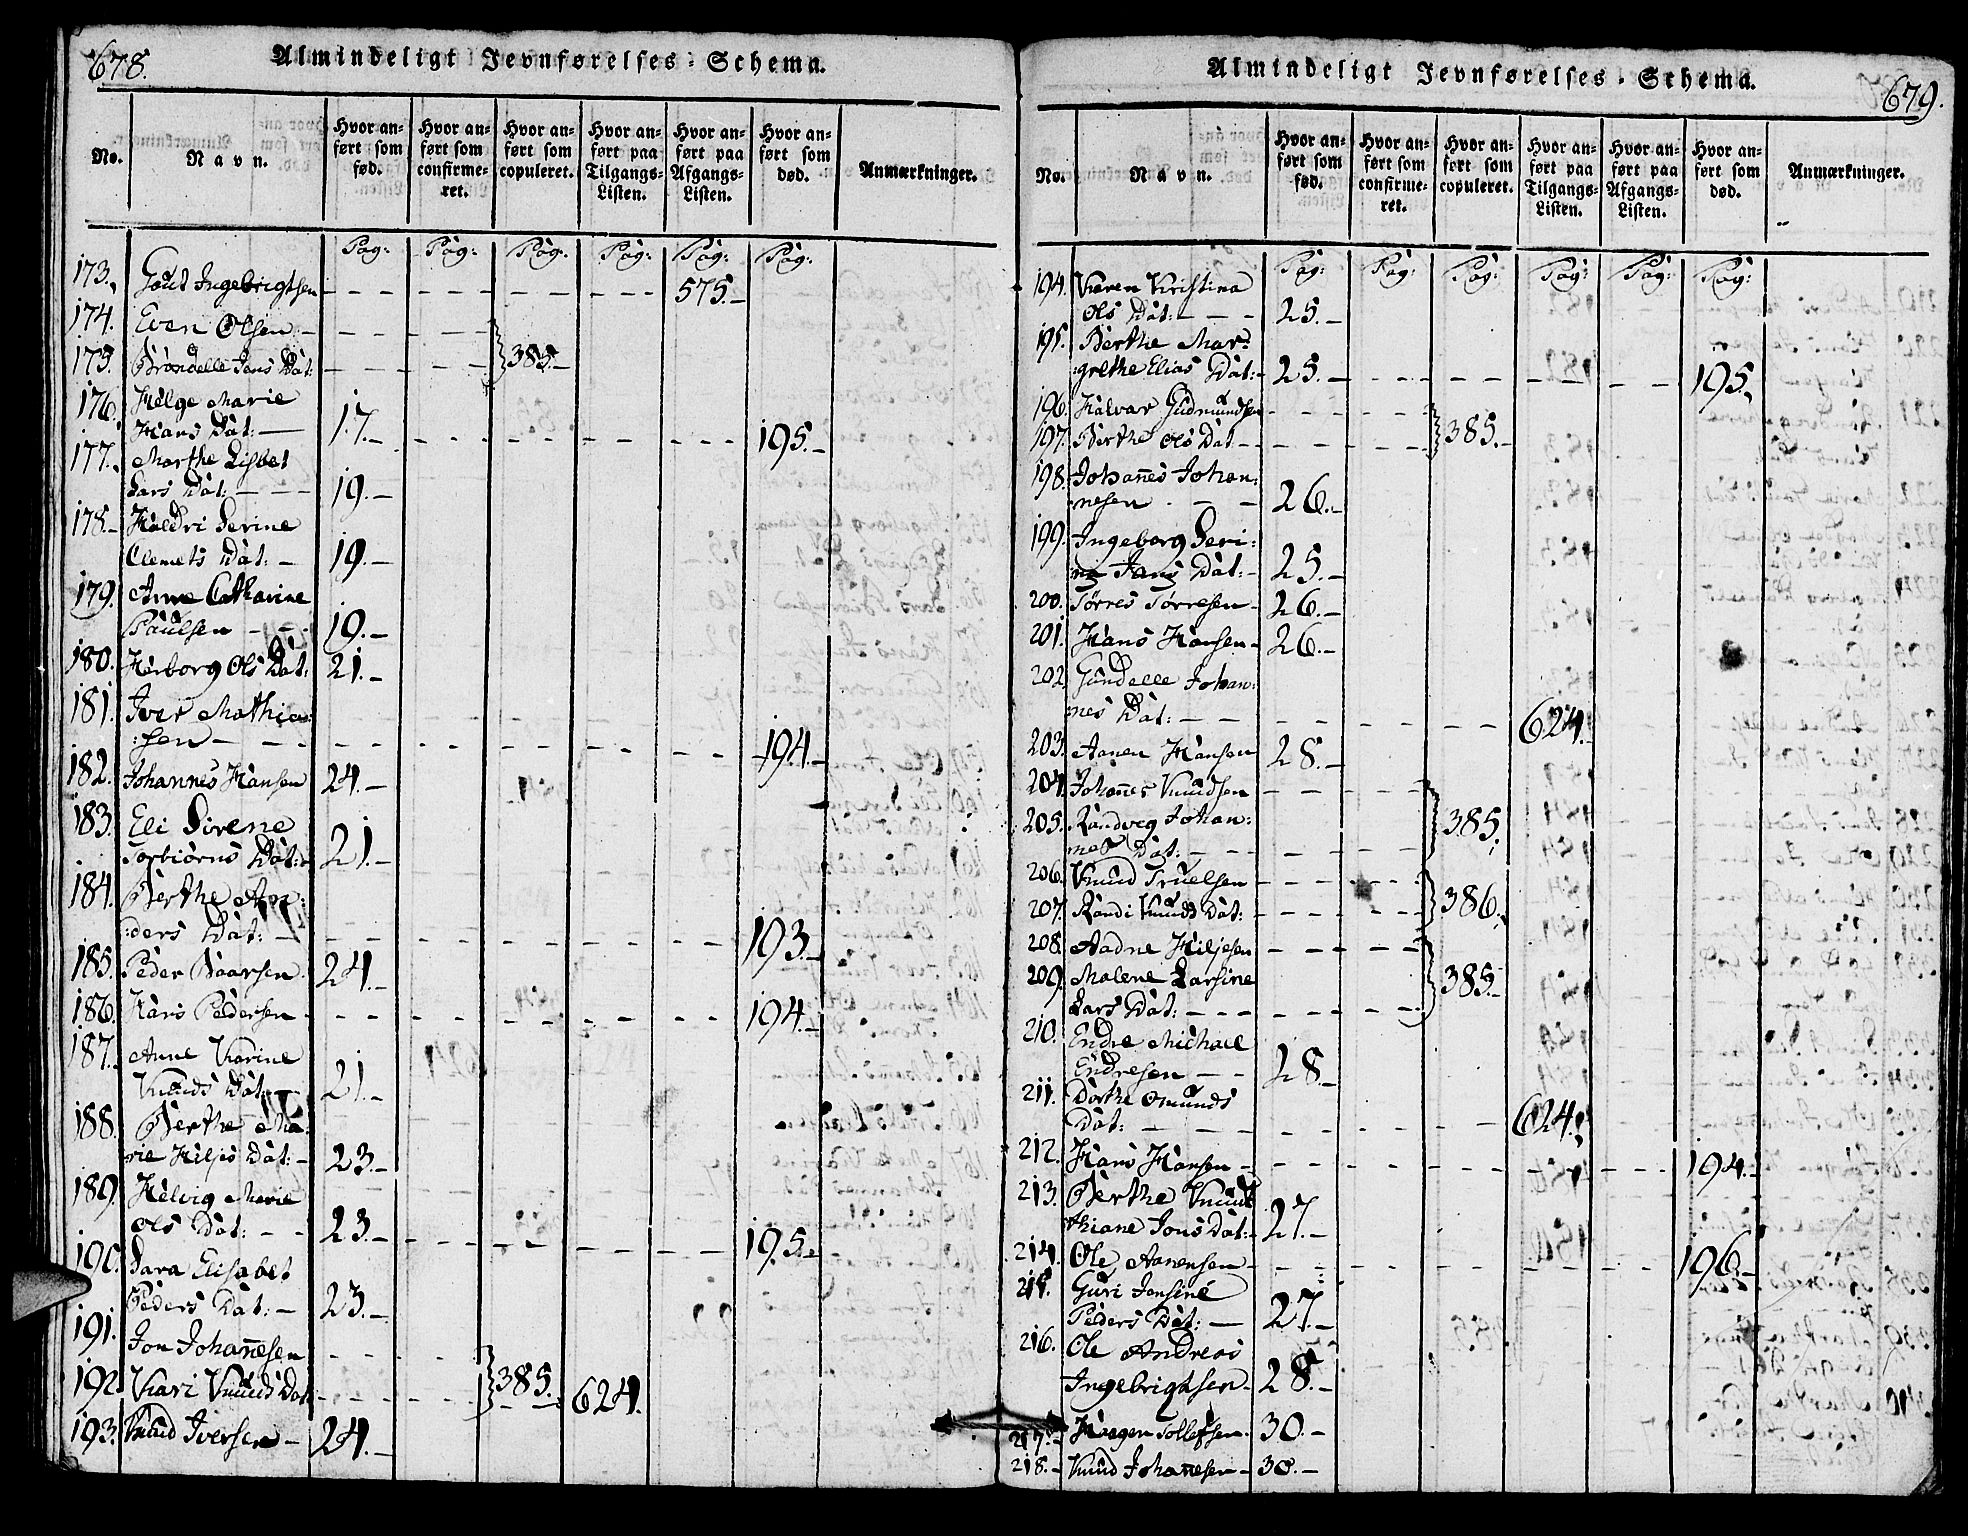 678.
Almindeligt Jevnførelses-Schema.
No.
Navn.
Hvor anført som fød.
Hvor anført som confirmeret.
Hvor anført som copuleret.
Hvor anført paa Tilgangs-Listen.
Hvor anført paa Afgangs-Listen.
Hvor anført som død.
Anmærkninger.
Pag: Pag: Pag. Pag: Pag: Pag:
173. Gout Ingebrigtsen - - - - 575.-
174. Even Olsen - - - -
175. Brondelle Jens Dat: - - - 385.-
176. Helge Marie
Hans Dat: — 17.- - - - - 195.-
177. Marthe Lisbet
Lars Dat: - - - 19.-
178. Haldri Serine
Clemets Dat: - 19.-
179. Anne Catharine
Paulsen - - - 19.-
180. Herborg Ols Dat: 21.-
181. Iver Mathia:
:sen - - - - - - - 194.-
182. Johannes Hansen 24.-
183. Eli Sirene
Torbiørns Dat: 21.-
184. Berthe An:
:ders Dat: - - - - - - 193.-
185. Peder Baarsen. 24.-
186. Hans Pedersen - - - - - - 194.-
187. Anne Karine
Knuds Dat: - 21.-
188. Berthe Ma:
rie Hiljes Dat: - 23.-
189. Helvig Marie
Ols Dat: - - 23.- - - - - 195.-
190. Sara Elisabet
Peders Dat: - 23.-
191. Jon Johannesen - - -
192. Kari Knuds Dat: - - - 385.- 624.
193. Knud Iversen - 24.-
679.
Almindeligt Jevnførelses-Schema.
No.
Navn.
Hvor anført som fød.
Hvor anført som confirmeret.
Hvor anført som copuleret.
Hvor anført paa Tilgangs-Listen.
Hvor anført paa Afgangs-Listen.
Hvor anført som død.
Anmærkninger.
Pag: Pag: Pag: Pag: Pag: Pag:
194. Karen Kristina
Ols Dat: - - - 25.-
195. Berthe Mar:
:grethe Elias Dat: 25.- - - - - 195.-
196. Halvar Gudmundsen - - - -
197. Berthe Ols Dat - - - - - 385.-
198. Johannes Johan:
nesen - - - 26.-
199. Ingeborg Seri:
ne Jans Dat: - 25.-
200. Tørres Tørresen - 26.-
201. Hans Hansen - 26.-
202. Gundelle Johan:
nes Dat: - - - - - - 624.
203. Aanen Hansen 28.-
204. Johannes Knudsen - - - -
205. Randveg Johan:
nes Dat: - - - - - 385.
206. Knud Truelsen - - - -
207. Randi Knuds Dat: - - - - 386.
208. Aadne Hiljesen - - - -
209. Malene Larsine
Lars Dat: - - - - - - 385.-
210. Endre Michael
Endresen - - 28.-
211. Dorthe Omunds
Dat: - - - - - 624.
212. Hans Hansen - - - - - - - 194.-
213. Berthe Knud
thiane Jons Dat: 27.-
214. Ole Aanensen - - - - - - 196.-
215. Guri Jonsine
Peders Dat: — 27.-
216. Ole Andreas
Ingebrigtsen - 28.-
217.- Haagen Tollefsen. 30.-
218.- Knud Johannesen - 30.-